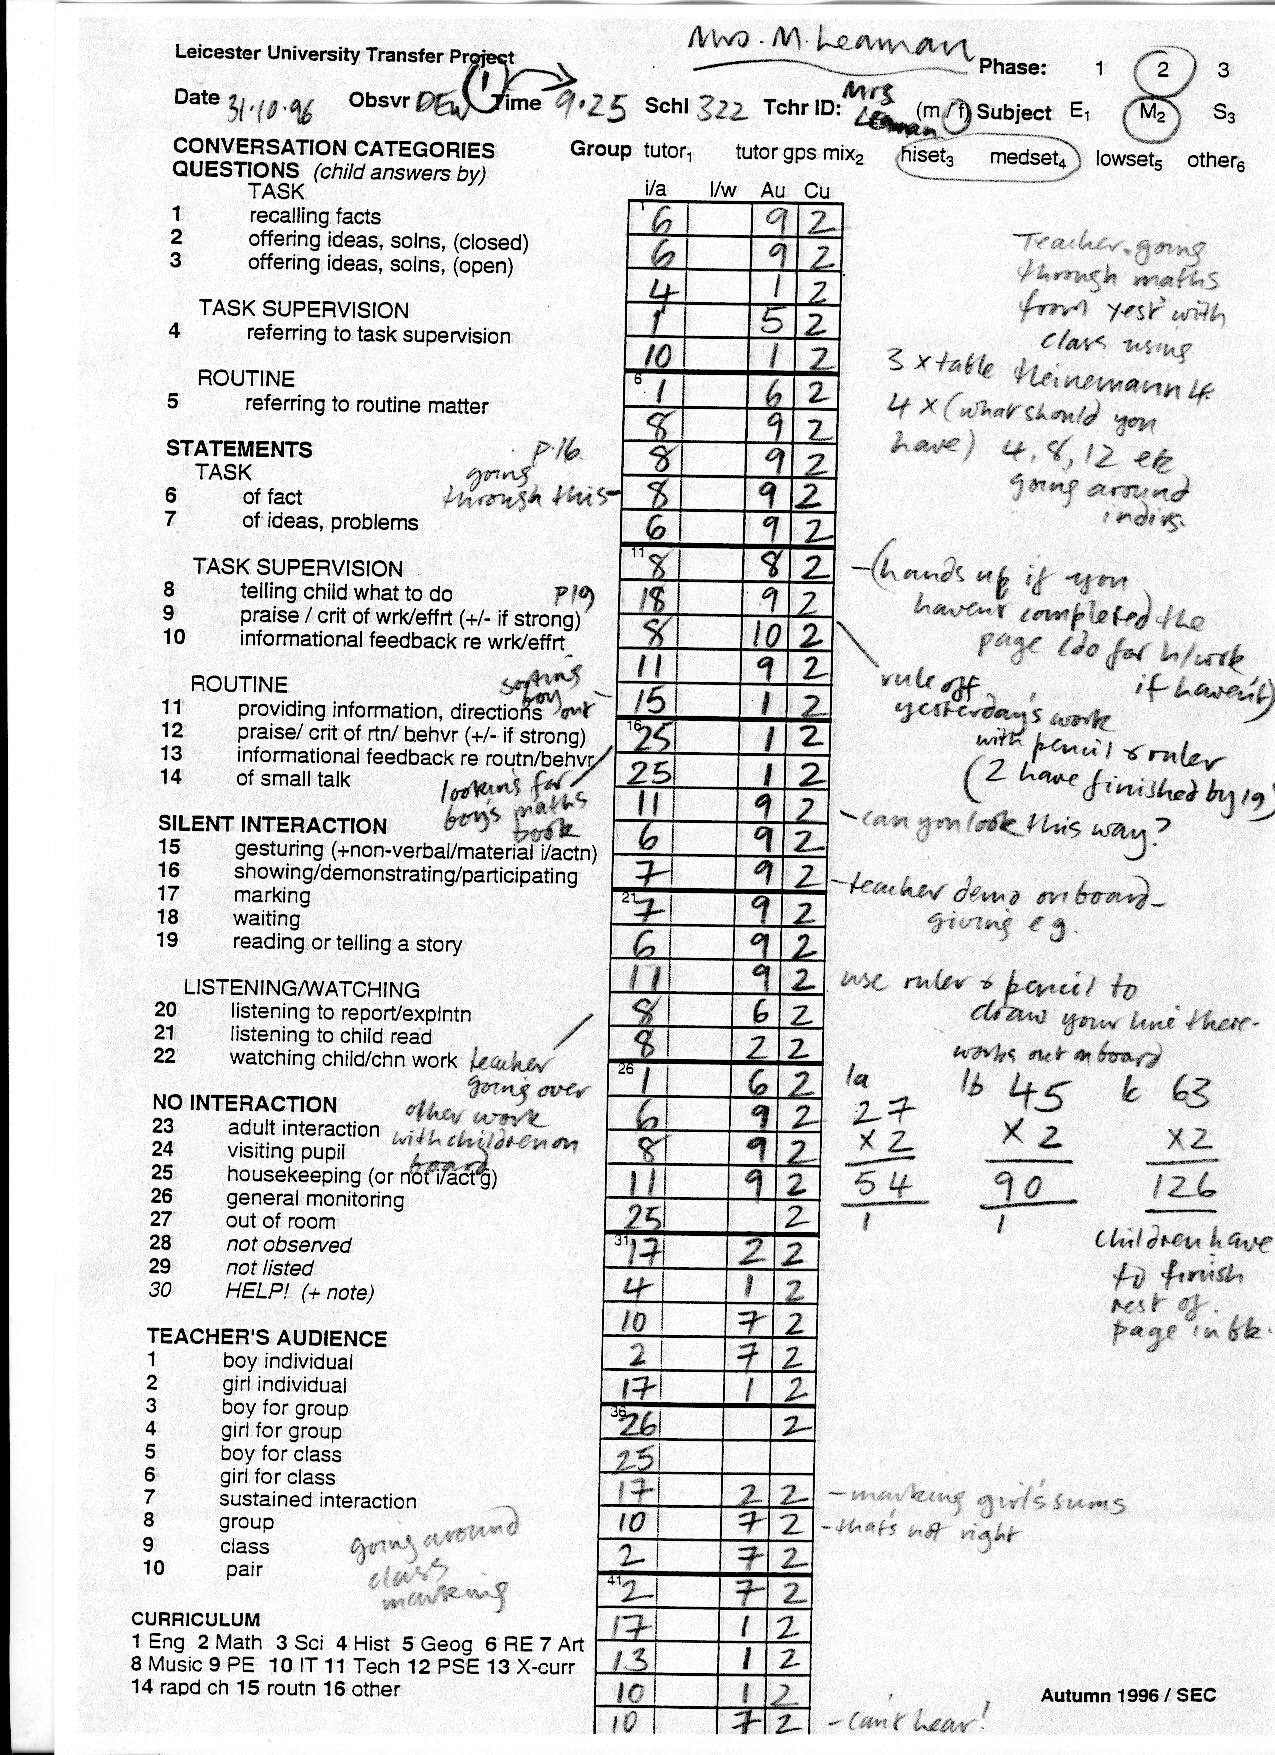 Mrs. M. Leaman
Leicester University Transfer Project
Phase: 1 2 3
Date 31.10.96 Obsvr DEW (1) Time 9.25 Schl 322 Tchr ID: Mrs Leaman (m / f) Subject E1 M2 S3
CONVERSATION CATEGORIES Group tutor1 tutor gps mix2 hiset3 medset4 lowset5 other6
QUESTIONS (child answers by)
TASK
1 recalling facts
2 offering ideas, solns, (closed)
3 offering ideas, solns, (open)
TASK SUPERVISION
4 referring to task supervision
ROUTINE
5 referring to routine matter
STATEMENTS
TASK
6 of fact
7 of ideas, problems
TASK SUPERVISION
8 telling child what to do
9 praise / crit of wrk/effrt (+/- if strong)
10 informational feedback re wrk/effrt
ROUTINE
11 providing information, directions
12 praise/ crit of rtn/ behvr (+/- if strong)
13 informational feedback re routn/behvr
14 of small talk
SILENT INTERACTION
15 gesturing (+non-verbal/material i/actn)
16 showing/demonstrating/participating
17 marking
18 waiting
19 reading or telling a story
LISTENING/WATCHING
20 listening to report/explntn
21 listening to child read
22 watching child/chn work
NO INTERACTION
23 adult interaction
24 visiting pupil
25 housekeeping (or not i/act'g)
26 general monitoring
27 out of room
28 not observed
29 not listed
30 HELP! (+ note)
TEACHER'S AUDIENCE
1 boy individual
2 girl individual
3 boy for group
4 girl for group
5 boy for class
6 girl for class
7 sustained interaction
8 group
9 class
10 pair
CURRICULUM
1 Eng 2 Math 3 Sci 4 Hist 5 Geog 6 RE 7 Art
8 Music 9 PE 10 IT 11 Tech 12 PSE 13 X-curr
14 rapd ch 15 routn 16 other
p.16
going
through this
p19
sorting
boy
out
looking for
boy's maths
book
teacher
going over
other work
with children on
board
going around
class
marking
i/a I/w Au Cu
1 6 9 2
6 9 2
4 1 2
1 5 2
10 1 2
6 1 6 2
8 9 2
8 9 2
8 9 2
6 9 2
11 8 8 2
18 9 2
8 10 2
11 9 2
15 1 2
16 25 1 2
25 1 2
11 9 2
6 9 2
7 9 2
21 7 9 2
6 9 2
11 9 2
8 6 2
8 2 2
26 1 6 2
6 9 2
8 9 2
11 9 2
25 2
31 17 2 2
4 1 2
10 7 2
2 7 2
17 1 2
36 26 2
25
17 2 2
10 7 2
2 7 2
41 2 7 2
17 1 2
13 1 2
10 1 2
10 7 2
Teacher going
through maths
from yest with
class using
3 x table Heinemann 4.
4 x (what should you
have) 4, 8, 12 etc
going around
indivs.
- (hands up if you
haven't completed the
page (do for h/work
if haven't)
rule off
yesterday's work
with pencil & ruler
(2 have finished by 19)
- can you look this way?
- teacher demo on board -
giving eg.
use ruler & pencil to
draw your line there -
works out on board
1a 1b 45 1c 63
27 x 2 x2
x 2 90 126
54 1
1
children have
to finish
rest of
page in bk.
- marking girl's sums
- that's not right
- can't hear!
Autumn 1996 / SEC